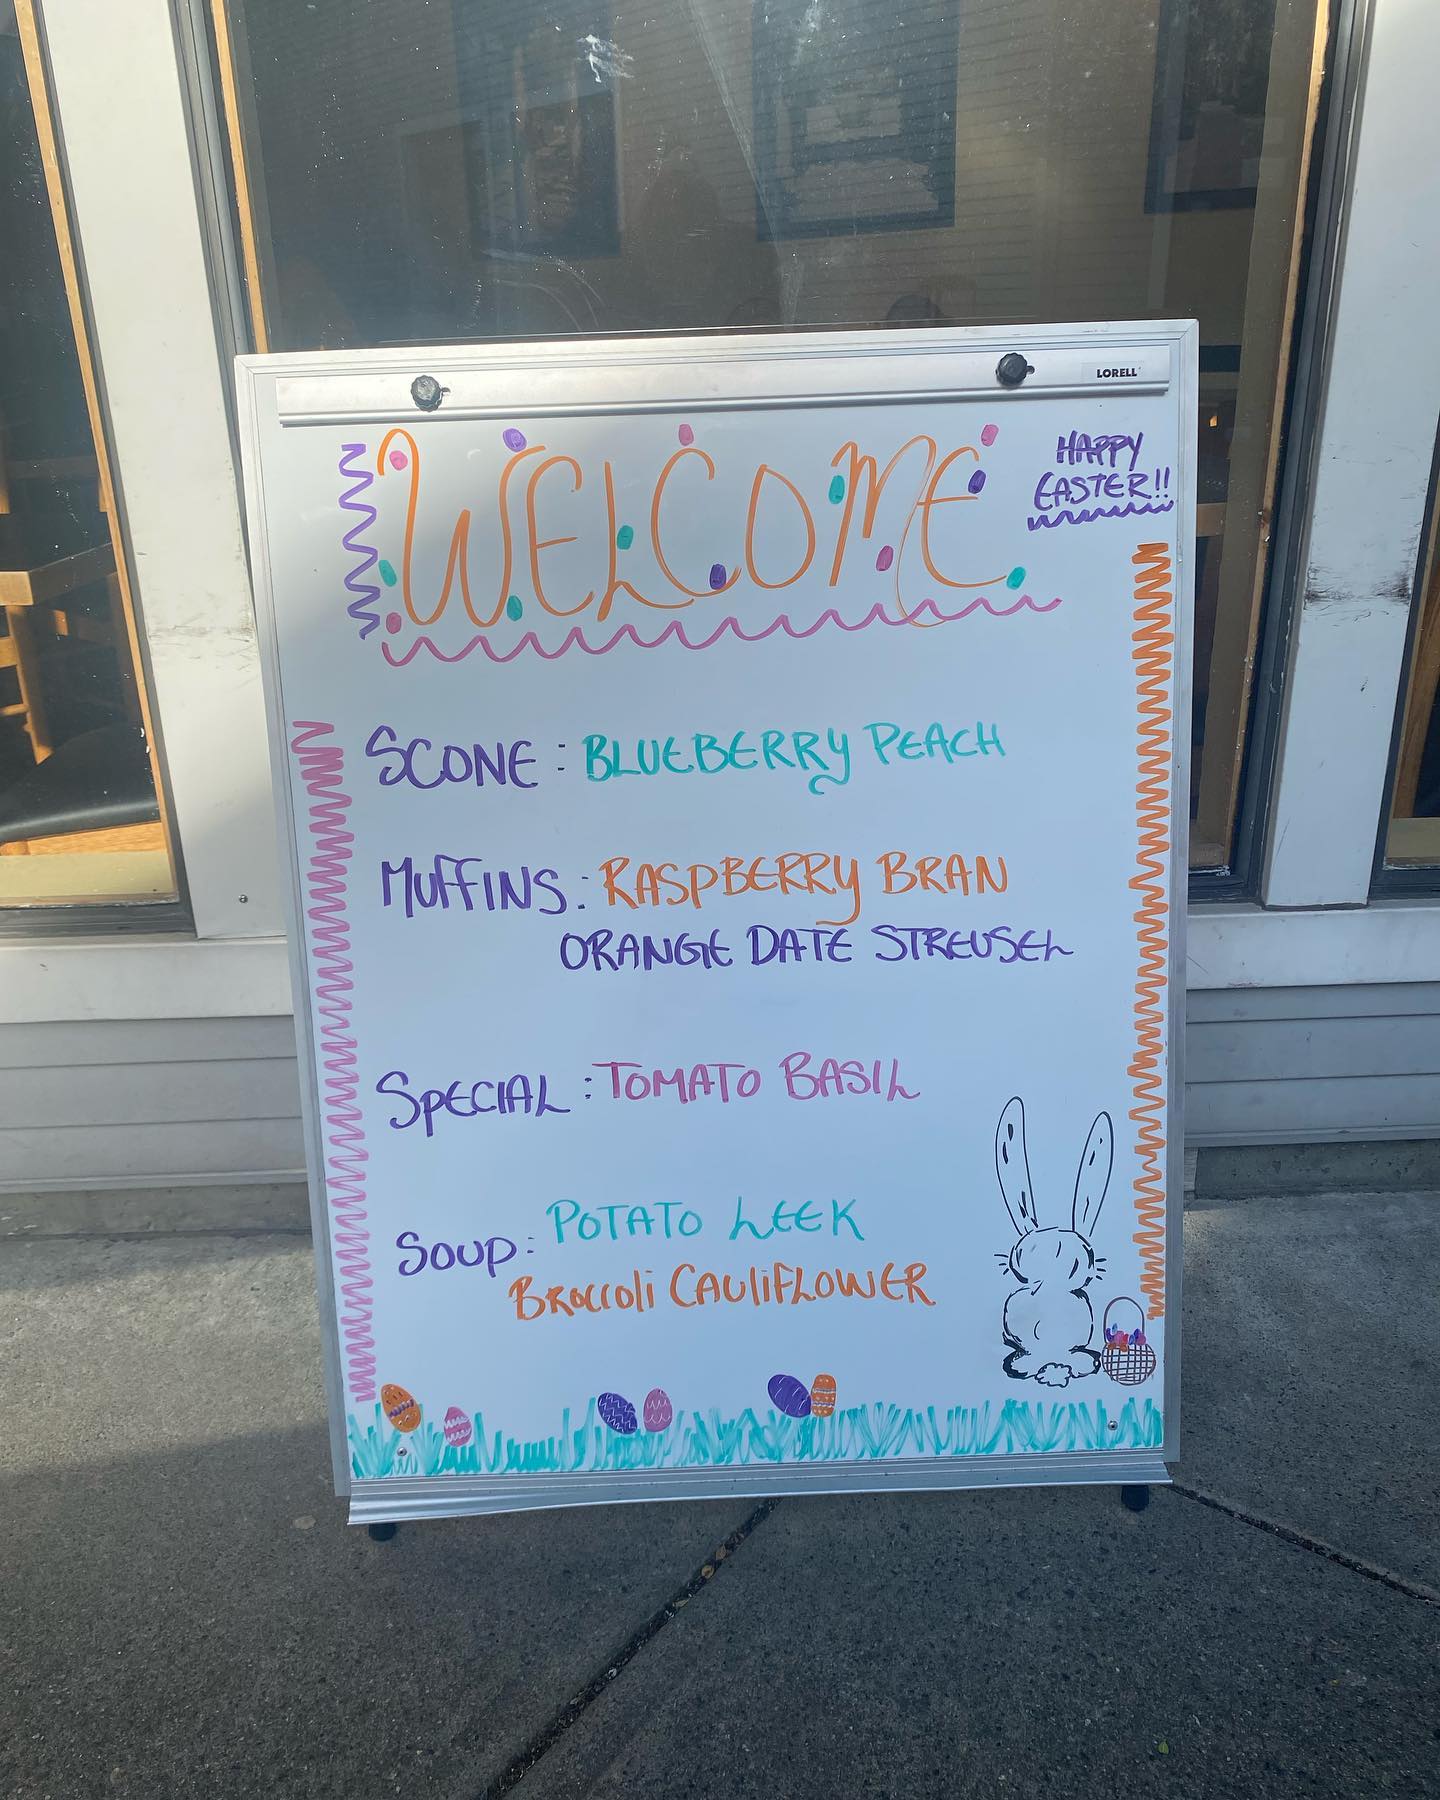 LORELL
WELCOME
HAPPY
EASTER!!
SCONE: BLUEBERRY PEACH
MUFFINS: RASPBERRY BRAN
ORANGE DATE STREUSEL
SPECIAL: TOMATO BASIL
SOUP: POTATO LEEK
BROCCOLI CAULIFLOWER